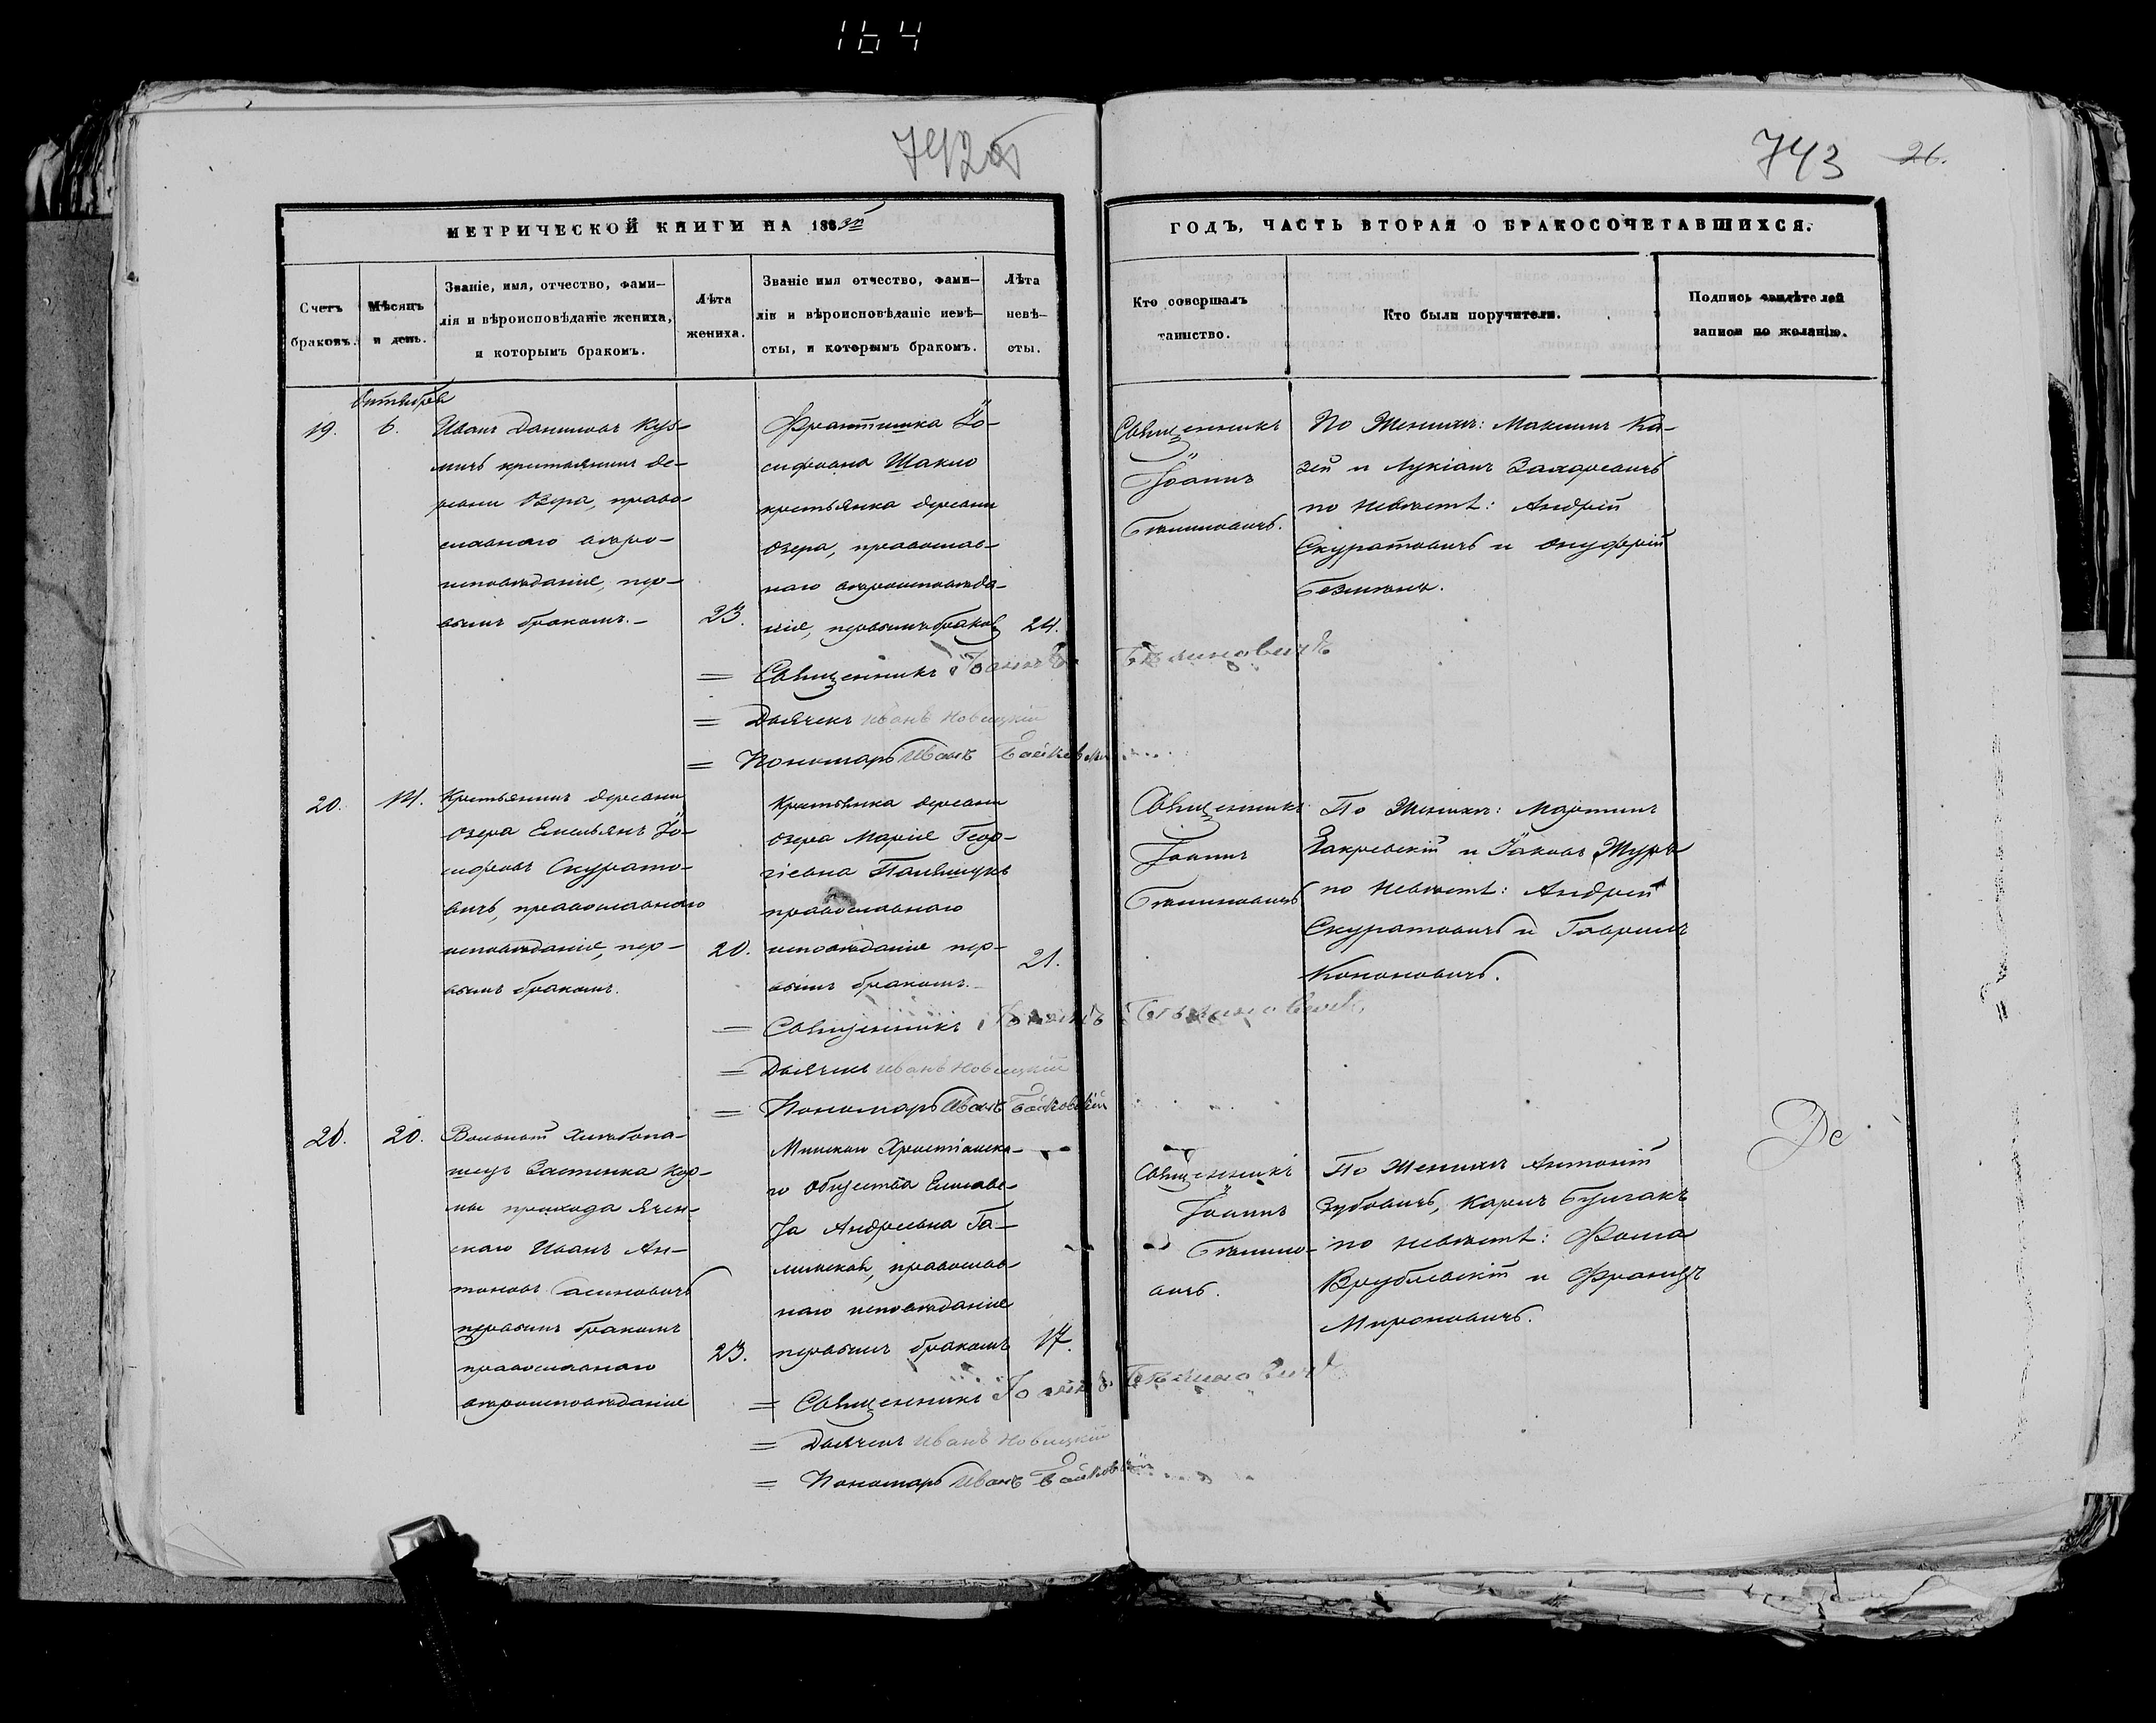 164
742 об
743 26.
МЕТРИЧЕСКОЙ КНИГИ НА 188
ГОДЪ, ЧАСТЬ ВТОРАЯ О БРАКОСОЧЕТАВШИХСЯ.
Счетъ
браковъ.
Мѣсяцъ
и день.
Званіе, имя, отчество, фами–
лія и вѣроисповѣданіе жениха,
и которымъ бракомъ.
Лѣта
жениха.
Званіе имя отчество, фами–
лія и вѣроисповѣданіе невѣ–
сты, и которымъ бракомъ.
Лѣта
невѣ–
сты.
Кто совершалъ
таинство.
Кто были поручители.
Подпись свидѣтелей
записи по желанію.
Октября
19.
6.
Иванъ Даниловъ Куз–
мичъ крестьянинъ де–
ревни Озера, право–
славнаго вѣро–
исповѣданія, пер–
вымъ бракомъ.
23.
Франтишка Іо–
сифовна Шакло
крестьянка деревни
Озера, православ–
наго вѣроисповѣда–
нія, первымъ бракомъ
24.
Священникъ
Іоаннъ
Бѣлиновичъ.
По Женихѣ: Максимъ Ка–
зей и Лукіанъ
по невѣстѣ: Андрей
Скуратовичъ и Онуфрій
= Священникъ Іоаннъ Бѣлиновичъ
= Дьячекъ Иванъ Новицкій
= Пономарь Иванъ
20.
14.
Крестьянинъ деревни
Озера Емельянъ Іо–
сифовъ Скурато–
вичъ, православнаго
исповѣданія, пер–
вымъ бракомъ.
20.
Крестьянка деревни
Озера Марія Геор–
гіевна
православнаго
исповѣданія пер–
вымъ бракомъ.
21.
Священникъ
Іоаннъ
Бѣлиновичъ
По Женихѣ: Мартинъ
Закревскій и Іаковъ Журъ
по невѣстѣ: Андрей
Скуратовичъ и Гавріилъ
Кононовичъ.
= Священникъ Іоаннъ Бѣлиновичъ
= Дьячекъ Иванъ Новицкій
= Пономарь Иванъ
21.
20.
Вольный Хлѣбопа–
шецъ Застенка
прихода
Иванъ Ан–
тоновъ
первымъ бракомъ
православнаго
вѣроисповѣданія
23.
Минскаго Христіанска–
го Общества Елисаве–
та Андреевна Га–
линская, православ–
наго исповѣданія
первымъ бракомъ
17.
Священникъ
Іоаннъ
Бѣлино–
вичъ.
По Женихѣ Антоній
Зубовичъ, Карлъ
по невѣстѣ: Фома
Врублевскій и Францъ
Мироновичъ.
= Священникъ Іоаннъ Бѣлиновичъ
= Дьячекъ Иванъ Новицкій
= Пономарь Иванъ